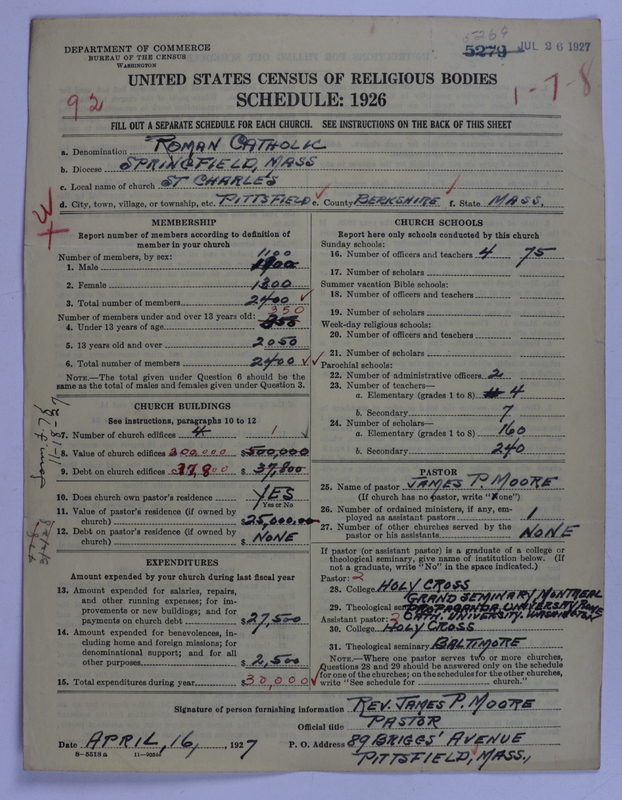 DEPARTMENT OF COMMERCE
BUREAU OF THE CENSUS
WASHINGTON
5269
5279 JUL 26 1927
UNITED STATES CENSUS OF RELIGIOUS BODIES
SCHEDULE: 1926
92
1-7-8
FILL OUT A SEPARATE SCHEDULE FOR EACH CHURCH. SEE INSTRUCTIONS ON THE BACK OF THIS SHEET
a. Denomination ROMAN CATHOLIC
b. Diocese SPRINGFIELD, MASS
c. Local name of church ST CHARLES
d. City, town, village, or township, etc. PITTSFIELD e. County BERKSHIRE f. State MASS.
MEMBERSHIP
Report number of members according to definition of
member in your church
Number of members, by sex:
1. Male 1100
2. Female 1300
3. Total number of members 2400
Number of members under and over 13 years old:
4. Under 13 years of age 350
5. 13 years old and over 2050
6. Total number of members 2400
NOTE.—The total given under Question 6 should be the
same as the total of males and females given under Question 3.
CHURCH BUILDINGS
See instructions, paragraphs 10 to 12
7. Number of church edifices 4 1
8. Value of church edifices 200,000 $500,000
9. Debt on church edifices 37,800 $37,800
10. Does church own pastor's residence YES
Yes or No
11. Value of pastor's residence (if owned by
church) $25,000.00
12. Debt on pastor's residence (if owned by
church) $ NONE
EXPENDITURES
Amount expended by your church during last fiscal year
13. Amount expended for salaries, repairs,
and other running expenses; for im-
provements or new building; and for
payments on church debt $27,500
14. Amount expended for benevolences, in-
cluding home and foreign missions; for
denominational support; and for all
other purposes $2,500
15. Total expenditures during year $30,000
CHURCH SCHOOLS
Report here only schools conducted by this church
Sunday schools:
16. Number of officers and teachers 4 75
17. Number of scholars
Summer vacation Bible schools:
18. Number of officers and teachers
19. Number of scholars
Week-day religious schools:
20. Number of officers and teachers
21. Number of scholars
Parochial schools:
22. Number of administrative officers 2
23. Number of teachers—
a. Elementary (grades 1 to 8) 4
b. Secondary 7
24. Number of scholars—
a. Elementary (grades 1 to 8) 160
b. Secondary 240
PASTOR
25. Name of pastor JAMES P. MOORE
(If church has no pastor, write "None")
26. Number of ordained ministers, if any, em-
ployed as assistant pastors 1
27. Number of other churches served by the
pastor or his assistants NONE
If pastor (or assistant pastor) is a graduate of a college or
theological seminary, give name of institution below. (If
not a graduate, write "No" in the space indicated.)
Pastor: 2
28. College HOLY CROSS
GRAND SEMINARY MONTREAL
29. Theological seminary PROPAGANDA UNIVERSITY ROME
CATH. UNIVERSITY WASHINGTON
Assistant pastor: 2
30. College HOLY CROSS
31. Theological seminary BALTIMORE
NOTE.—Where one pastor serves two or more churches,
Questions 28 and 29 should be answered only on the schedule
for one of the churches; on the schedules for the other churches,
write "See schedule for church."
Signature of person furnishing information REV. JAMES P. MOORE
Official title PASTOR
Date APRIL, 16, 1927 P. O. Address 89 BRIGGS' AVENUE
8—5518 a
PITTSFIELD, MASS.,